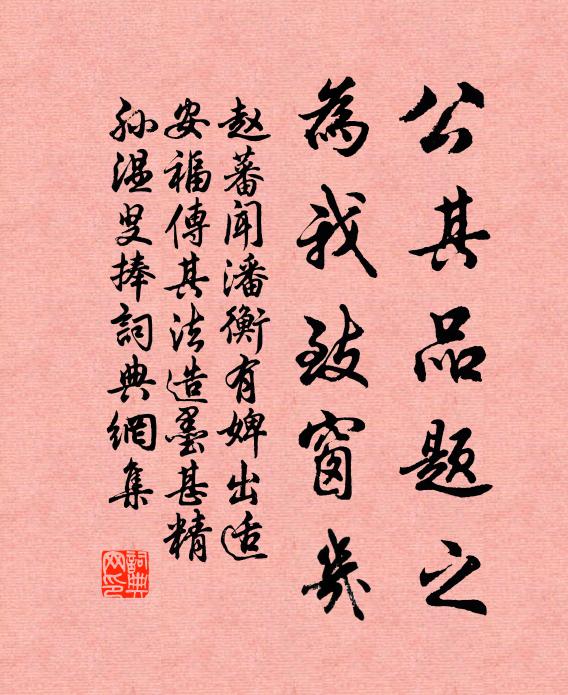 公其品题之
為我致窗几
赵蕃闻潘衡有婢出适
安福傳其法造墨甚精
孙温叟捧詞典網集
詞典
网印